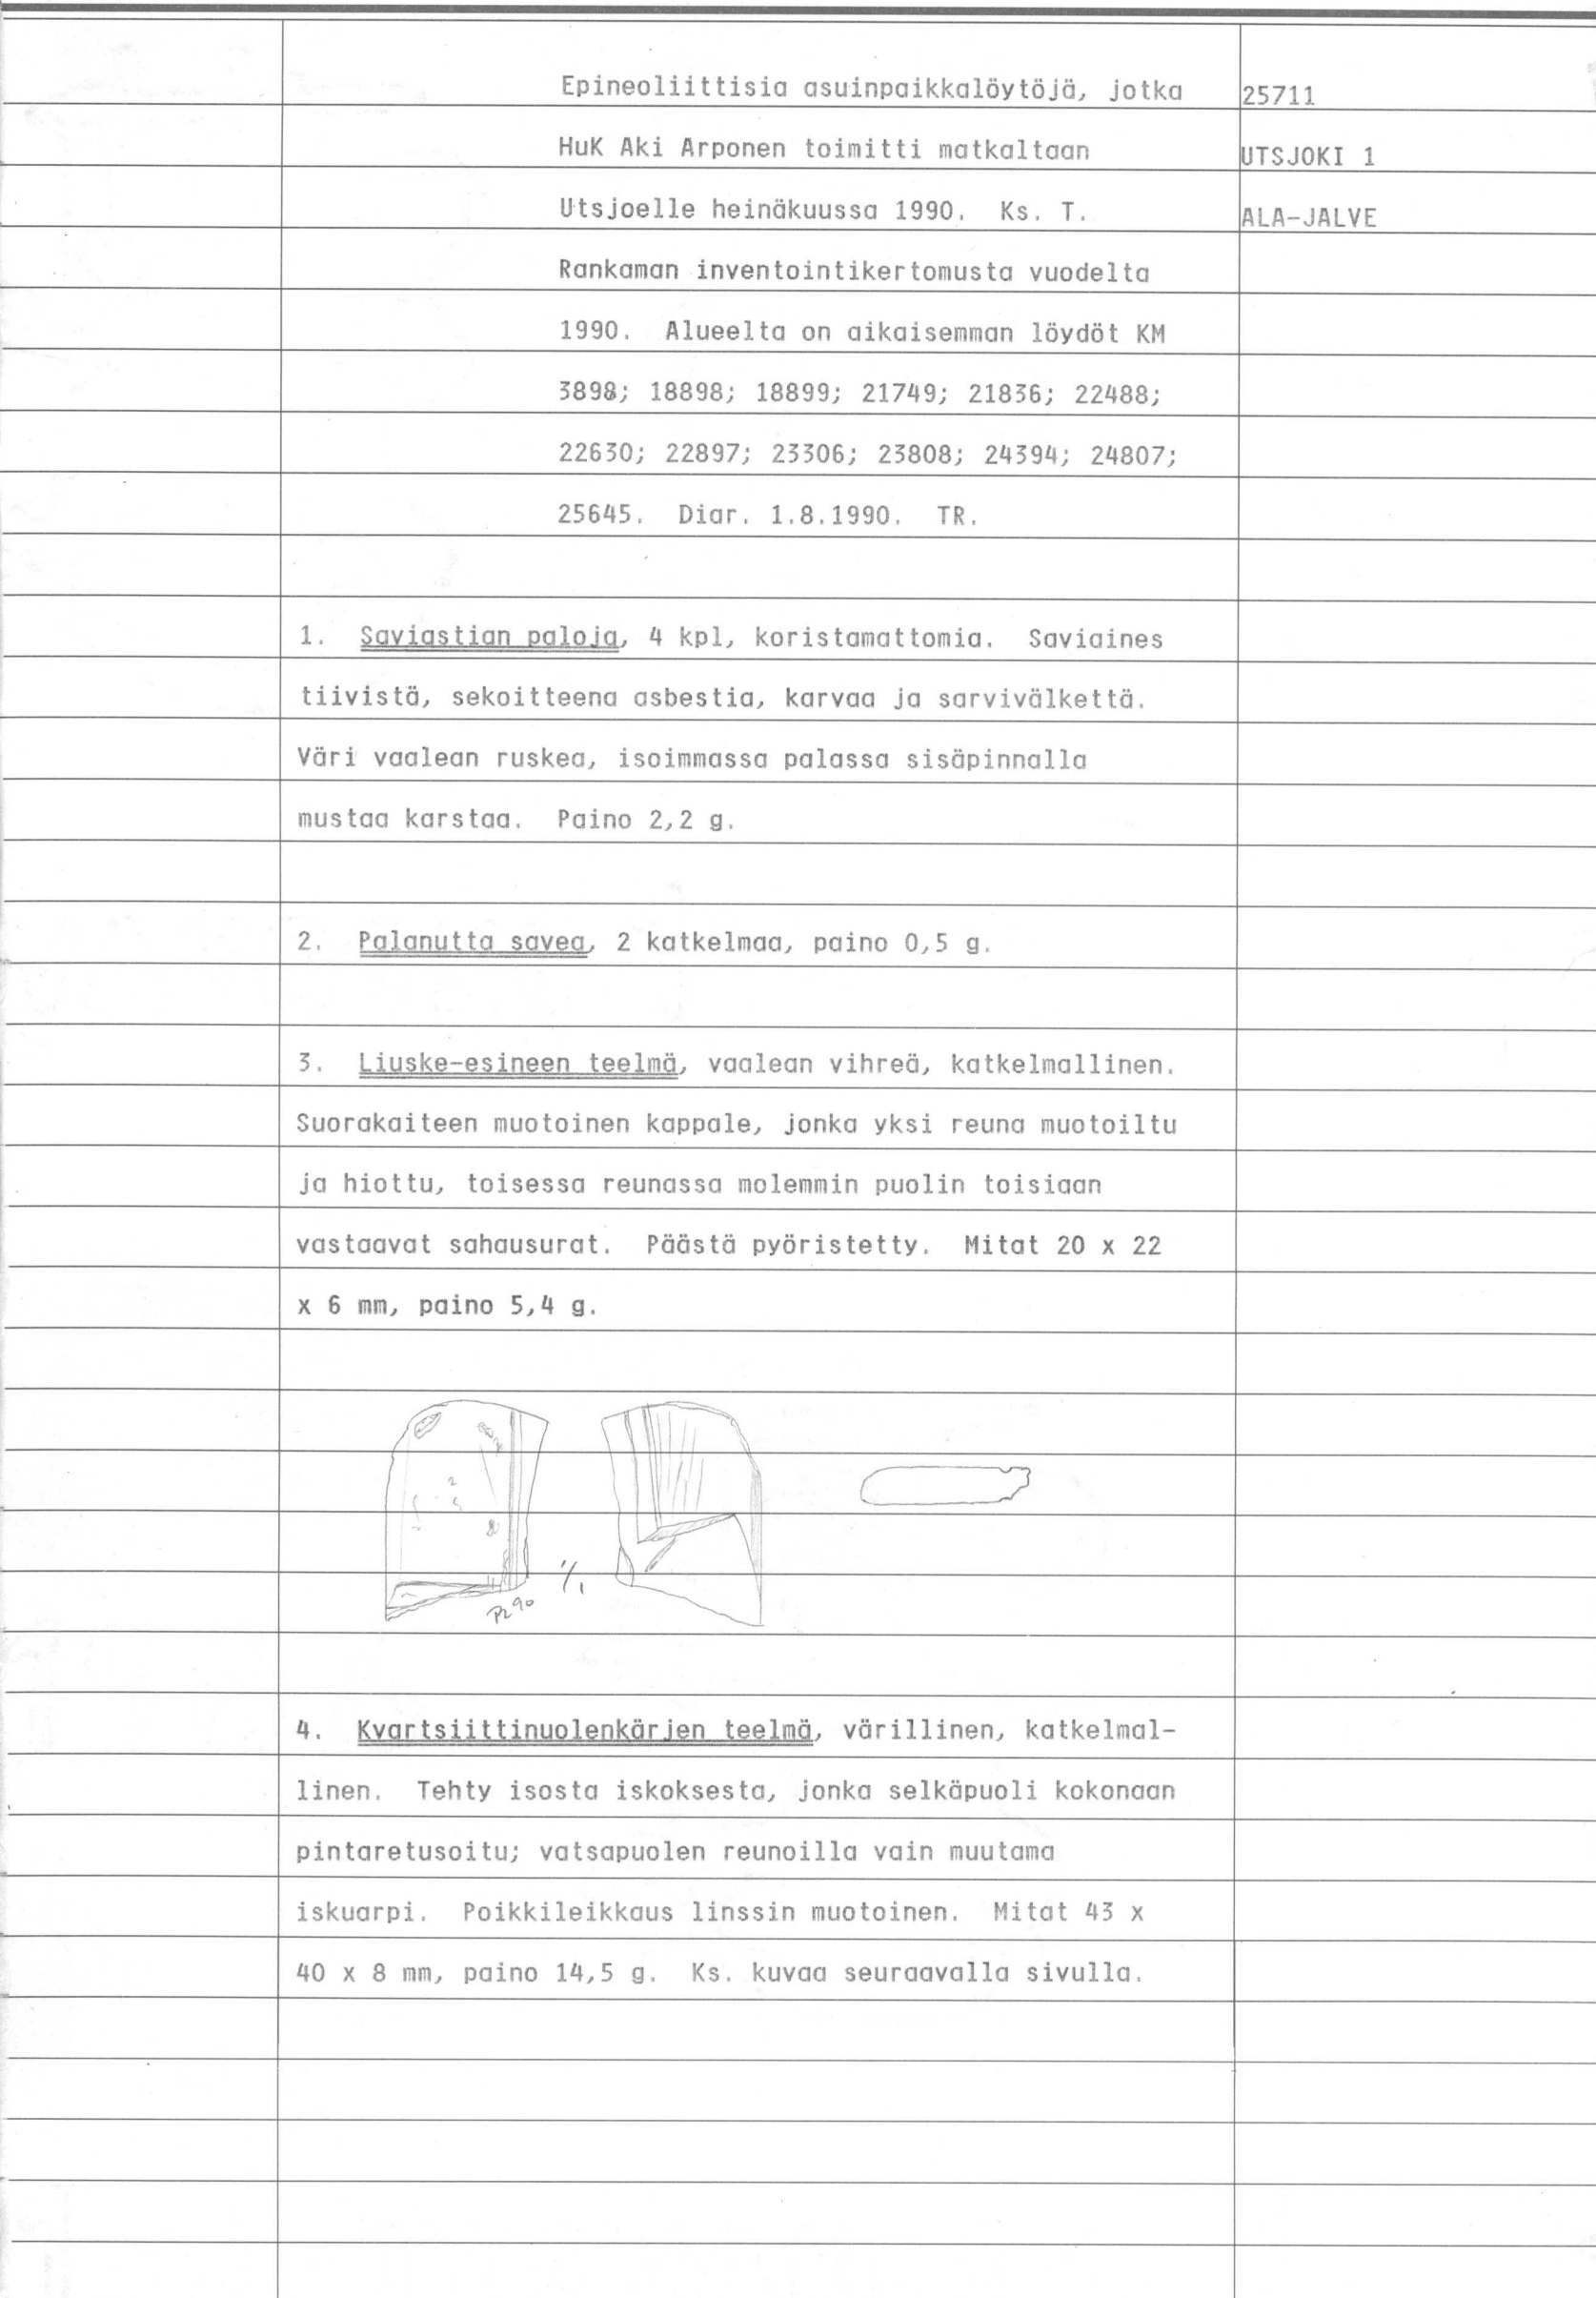 Epineoliittisia asuinpaikkalöytöjä, jotka
25711
HuK Aki Arponen toimitti matkaltaan
UTSJOKI 1
Utsjoelle heinäkuussa 1990. Ks. T.
ALA-JALVE
Rankaman inventointikertomusta vuodelta
1990. Alueelta on aikaisemman löydöt KM
3898; 18898; 18899; 21749; 21836; 22488;
22630; 22897; 23306; 23808; 24394; 24807;
25645. Diar. 1.8.1990. TR.
1. Saviastian paloja, 4 kpl, koristamattomia. Saviaines
tiivistä, sekoitteena asbestia, karvaa ja sarvivälkettä.
Väri vaalean ruskea, isoimmassa palassa sisäpinnalla
mustaa karstaa. Paino 2,2 g.
2. Palanutta savea, 2 katkelmaa, paino 0,5 g.
3. Liuske-esineen teelmä, vaalean vihreä, katkelmallinen.
Suorakaiteen muotoinen kappale, jonka yksi reuna muotoiltu
ja hiottu, toisessa reunassa molemmin puolin toisiaan
vastaavat sahausurat. Päästä pyöristetty. Mitat 20 x 22
x 6 mm, paino 5,4 g.
1/1
90
4. Kvartsiittinuolenkärjen teelmä, värillinen, katkelmal-
linen. Tehty isosta iskoksesta, jonka selkäpuoli kokonaan
pintaretusoitu; vatsapuolen reunoilla vain muutama
iskuarpi. Poikkileikkaus linssin muotoinen. Mitat 43 x
40 x 8 mm, paino 14,5 g. Ks. kuvaa seuraavalla sivulla.